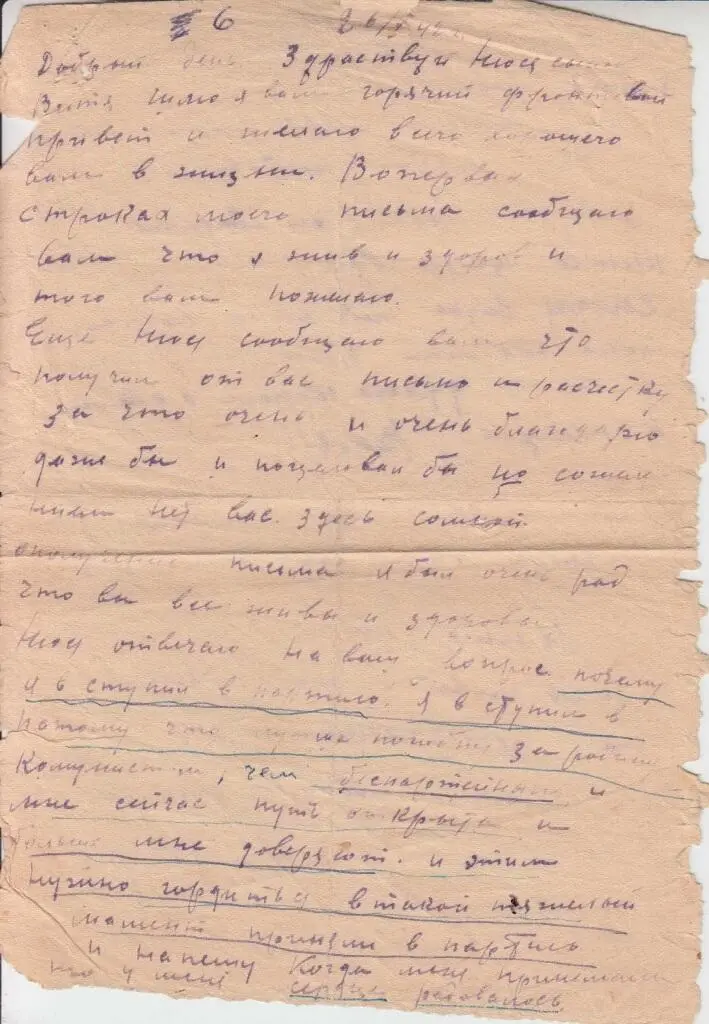 6 26/V 42 г.
Добрый день Здраствуй Нюся сынок
Витя шлю я вам горячий фронтовой
привет и желаю всего хорошего
вам в жизни. Вопервых
строках моего письма сообщаю
вам что я жив и здоров и
того вам пожелаю.
Еще Нюся сообщаю вам что
получил от вас письмо и расчестку
за что очень и очень благодарю
даже бы и поцеловал бы но сожале
нию нет вас здесь самой
письма я был очень рад
что вы все живы и здоровы.
Нюся отвечаю на ваш вопрос почему
я вступил в партию. Я вступил в
потому что лучше погибну за родину
комунистом, чем беспартейным и
мне сейчас путь открыт и
больше мне доверяют. и этим
нужно гордиться в такой тяжелый
мамент приняли в партию
и напишу Когда меня принемали
то у меня сердце радовалось